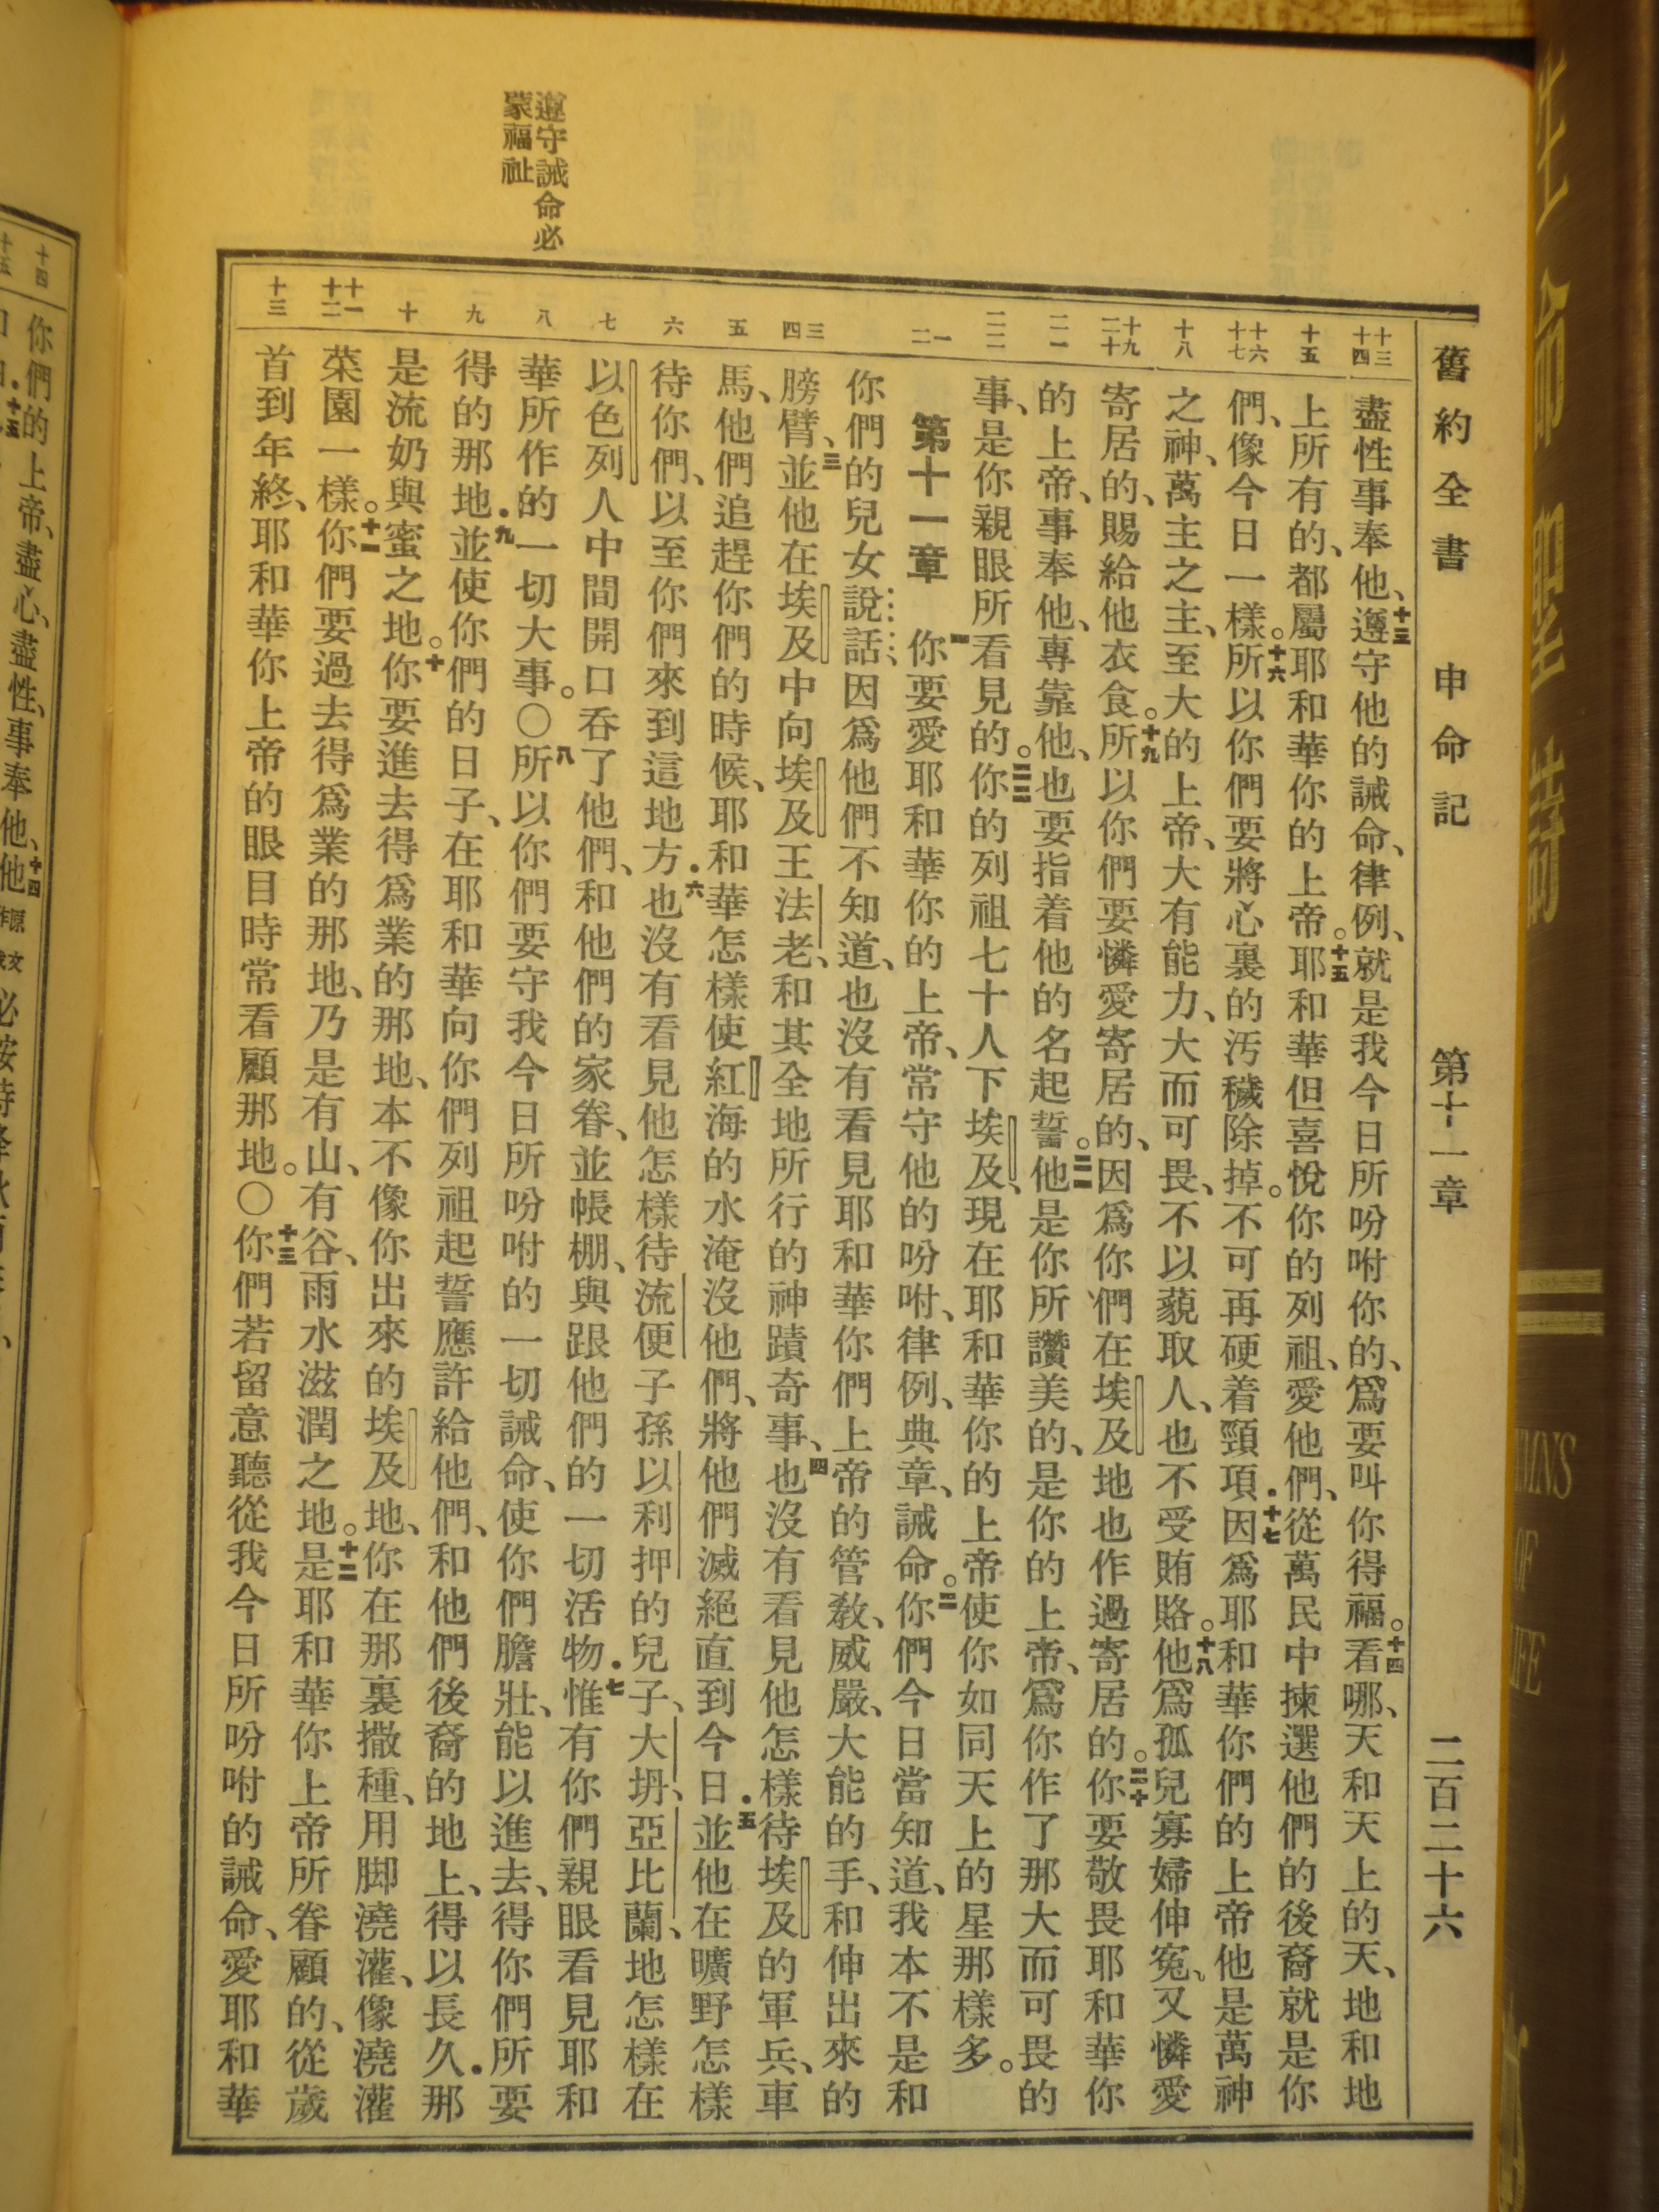 舊約全書 申命記 第十一章 二百二十六
十三
十四
盡性事奉他、十三遵守他的誡命、律例、就是我今日所吩咐你的、爲要叫你得福。十四看哪、天和天上的天、地和地
十五
上所有的、都屬耶和華你的上帝。十五耶和華但喜悅你的列祖、愛他們、從萬民中揀選他們的後裔就是你
十六
十七
們、像今日一樣。十六所以你們要將心裏的汚穢除掉。不可再硬着頸項．十七因爲耶和華你們的上帝他是萬神
十八
之神、萬主之主、至大的上帝、大有能力、大而可畏、不以藐取人、也不受賄賂。十八他爲孤兒寡婦伸寃、又憐愛
十九
二十
寄居的、賜給他衣食。十九所以你們要憐愛寄居的、因爲你們在埃及地也作過寄居的。二十你要敬畏耶和華你
二一
的上帝、事奉他、專靠他、也要指着他的名起誓。二一他是你所讚美的、是你的上帝、爲你作了那大而可畏的
二二
事、是你親眼所看見的。二二你的列祖七十人下埃及、現在耶和華你的上帝使你如同天上的星那樣多。
一
二
第十一章 一你要愛耶和華你的上帝、常守他的吩咐、律例、典章、誡命。二你們今日當知道、我本不是和
你們的兒女說話、因爲他們不知道、也沒有看見耶和華你們上帝的管教、威嚴、大能的手、和伸出來的
三
四
膀臂、三並他在埃及中向埃及王法老、和其全地所行的神蹟奇事、四也沒有看見他怎樣待埃及的軍兵、車
五
馬、他們追趕你們的時候、耶和華怎樣使紅海的水淹沒他們、將他們滅絕直到今日．五並他在曠野怎樣
六
待你們、以至你們來到這地方．六也沒有看見他怎樣待流便子孫以利押的兒子、大坍、亞比蘭、地怎樣在
七
以色列人中間開口吞了他們、和他們的家眷、並帳棚、與跟他們的一切活物．七惟有你們親眼看見耶和
八
華所作的一切大事。〇八所以你們要守我今日所吩咐的一切誡命、使你們膽壯、能以進去、得你們所要
九
得的那地．九並使你們的日子、在耶和華向你們列祖起誓應許給他們、和他們後裔的地上、得以長久．那
十
是流奶與蜜之地。十你要進去得爲業的那地、本不像你出來的埃及地、你在那裏撒種、用脚澆灌、像澆灌
十一
十二
菜園一樣。十一你們要過去得爲業的那地、乃是有山、有谷、雨水滋潤之地。十二是耶和華你上帝所眷顧的、從歲
十三
首到年終、耶和華你上帝的眼目時常看顧那地。〇十三你們若留意聽從我今日所吩咐的誡命、愛耶和華
遵守誡命必
蒙福祉
十四
你們的上帝、盡心、盡性、事奉他、十四他